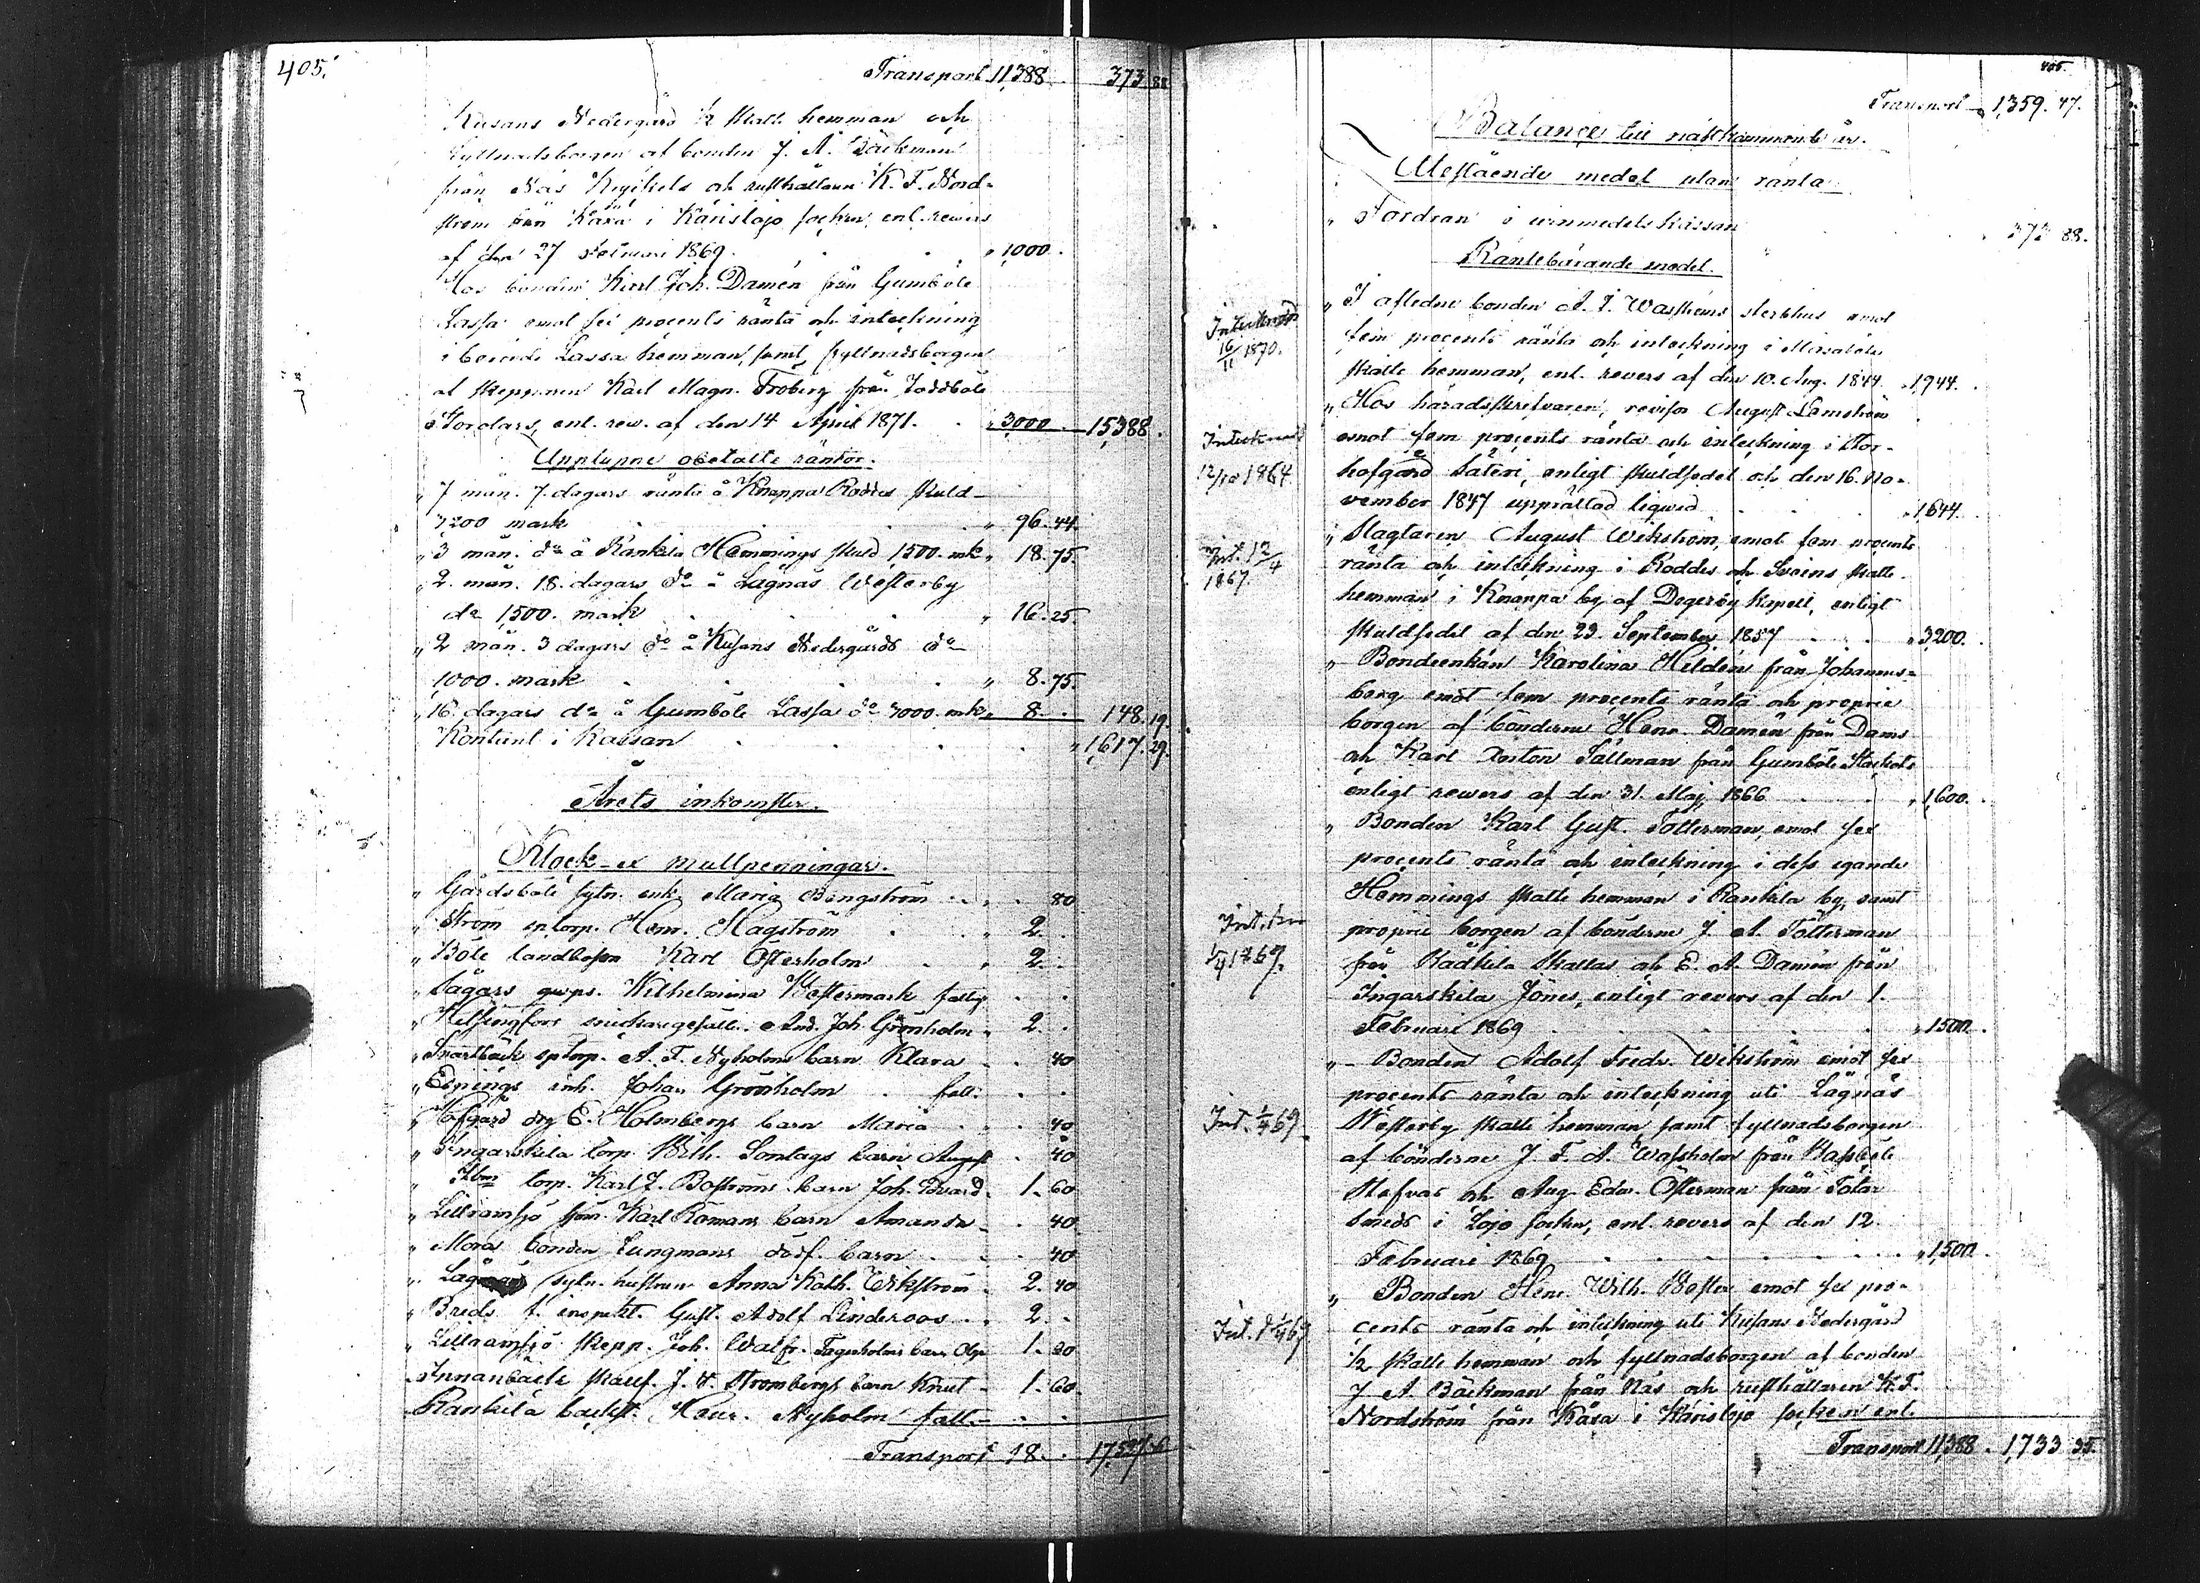 405.
Transport 11,388. 373 88
Kusans Nedergård ½ skatte hemman och
fyllnadsborgen af bonden J. A. Bäckman
från Näs Kryckels och rusthållaren K. F. Nord-
ström från Kåsa i Karislojo socken, enl. revers
af den 27 Februari 1869. " 1,000.
Hos bonden Karl Joh. Damén från Gumböle
Lassa emot sex procents ränta och inteckning
i berörde Lassa hemman, samt fyllnadsborgen
af skepparen Karl Magn. Froberg från Joddböle
Stordars, enl. rev. af den 14 April 1871. " 3,000. 15,388.
Upplupne obetalte räntor.
" 7 mån. 7. dagars ränta å Knappa Roddes skuld
3200 mark " 96. 44.
" 3 mån. do å Rankila Hemmings skuld 1,500. mk " 18. 75.
" 2. mån. 18. dagars do å Lägnäs Westerby
do 1,500. mark " 16. 25.
" 2 mån. 3 dagars do å Kusans Nedergårds do
1,000. mark " 8. 75.
" 16. dagars do å Gumböle Lassa do 3000. mk " 8. 148. 19.
Kontant i Kassan " 1,617. 29.
Årets inkomster.
Klock- et mullpenningar.
" Gårdsböle sytn. enk. Maria Bengström 80
" Ström sp.torp. Henr. Hagström " 2.
" Böle landbofon Karl Österholm " 2.
" Sågars gmps. Wilhelmina Westermark fattig
" Helsingfors snickaregesäll. And. Joh. Grönholm 2.
" Svartbäck sp.torp. A. F. Nyholms barn Klara 40
" Espings inh. Johan Grönholm fatt:
" Hofgård drg E. Holmbergs barn Maria 40
" Ingarskila torp. Wilh. Sontags barn August 40
" Ibm torp. Karl J. Boströms barn Joh. Edvard 1. 60
" Lillramsjö sjöm. Karl Romans barn Amanda 40
" Mora bonden Ljungmans dödf. barn 40
" Lägnäs sytn. hustrun Anna Kath. Wikström 2. 40
" Breds f. inspekt. Gust. Adolf Linderoos 2.
" Lillramsjö skepp. Joh. Walfr. Fagerholms barn Olga 1. 20
" Innanbäck skarf. J. W. Strombergs barn Knut 1. 60
Rankila backst. Henr. Nyholm fatt.
Transport 18. 17,527. 6
405.
Transport 1,359. 47.
Balance till nästkommande år.
Utestående medel utan ränta.
" Fordran i vinmedelskassan 373 88.
Räntebärande medel.
" I aflidne bonden A. J. Wasströms sterbhus emot
Intecknad
16/11 1870.
fem procents ränta och inteckning i
skatte hemman, enl. revers af den 10. Aug. 1844. 1,944.
" Hos häradsskrifvaren, revisor August Lamström
Intecknad
emot fem procents ränta och inteckning i Stor-
12/10 1864.
hofgård Säteri, enligt skuldsedel och den 16. No-
vember 1847 upprättad liqvid " 1,644.
" Slagtaren August Wikström, emot fem procents
Int. 12/4
1867.
ränta och inteckning i Roddes och Svens skatte
hemman i Knappa by af Degerby kapell, enligt
skuldsedel af den 23. September 1857 " 3,200.
" Bondeenkan Karolina Hildén från Johannes-
berg emot fem procents ränta och proprie
borgen af bönderne Henr. Damén från Dams
och Karl Anton Tallman från Gumböle
enligt revers af den 31. Maj 1866 " 1,600.
" Bonden Karl Gust. Totterman, emot sex
procents ränta och inteckning i dess egande
Hemmings skatte hemman i Rankila by, samt
Int. den
proprie borgen af bönderne J. A. Tötterman
1/4 1869.
från Rädkila Skattas och E. A. Damén från
Ingarskila Jönes, enligt revers af den 1.
Februari 1869 " 1,500.
" Bonden Adolf Fredr. Wikström emot sex
procents ränta och inteckning uti Lägnäs
Int. 1/4 69.
Westerby skatte hemman, samt fyllnadsborgen
af bönderne J. F. A. Wassholm från
Stafvas och Aug. Edv. Österman från Totar
Smeds i Lojo socken, enl. revers af den 12.
Februari 1869 " 1,500.
" Bonden Henr. Wilh. Wester emot sex pro-
Int. 1/4 69
cents ränta och inteckning uti Kusans Nedergård
½ skatte hemman och fyllnadsborgen af bonden
J. A. Bäckman från Näs och rusthållaren K. F.
Nordström från Kåsa i Karislojo socken enl.
Transport 11,388. 1,733 35